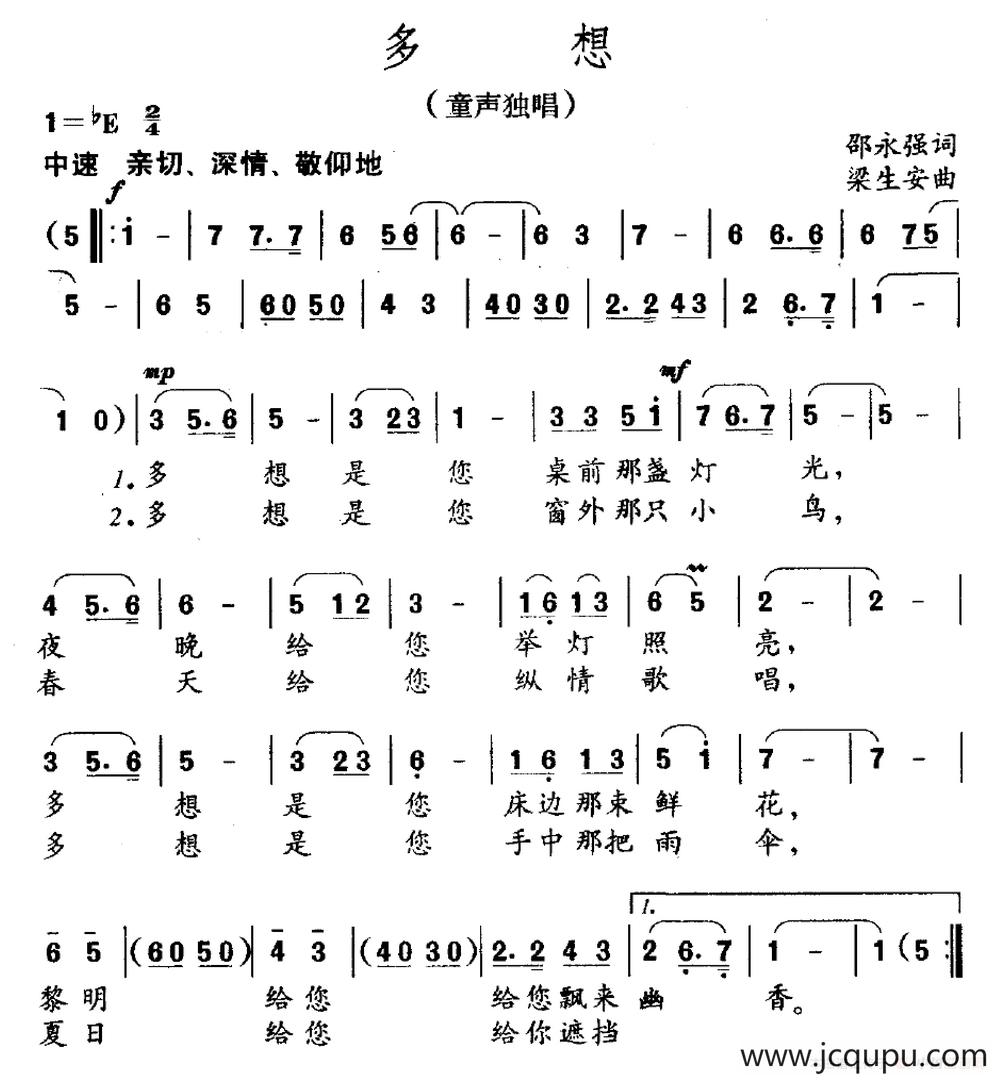 多 想
(童声独唱)
1=♭E 2/4
中速 亲切、深情、敬仰地
邵永强词
梁生安曲
f
(5 ‖: i - | 7 7. 7 | 6 56 | 6 - | 6 3 | 7 - | 6 6. 6 | 6 75 |
5 - | 6 5 | 60 50 | 4 3 | 40 30 | 2. 2 43 | 2 6. 7 | 1 - |
mp mf
1 0) | 3 5. 6 | 5 - | 3 23 | 1 - | 3 3 5 i | 7 6. 7 | 5 - | 5 - |
1. 多 想 是 您 桌前那盏灯 光,
2. 多 想 是 您 窗外那只小 鸟,
4 5. 6 | 6 - | 5 12 | 3 - | 16 13 | 6 5 | 2 - | 2 - |
夜 晚 给 您 举灯照 亮,
春 天 给 您 纵情歌 唱,
3 5. 6 | 5 - | 3 23 | 6 - | 1 6 1 3 | 5 i | 7 - | 7 - |
多 想 是 您 床边那束鲜 花,
多 想 是 您 手中那把雨 伞,
1.
6 5 | (60 50) | 4 3 | (40 30) | 2. 2 4 3 | 2 6. 7 | 1 - | 1 (5 :‖
黎明 给您 给您飘来幽 香。
夏日 给您 给你遮挡
www.jcqupu.com